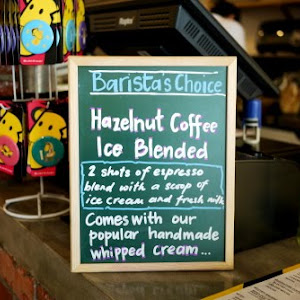 Barista's Choice
Hazelnut Coffee
Ice Blended
2 shots of espresso
blend with a scoop of
ice cream and fresh milk
Comes with our
popular handmade
whipped cream...